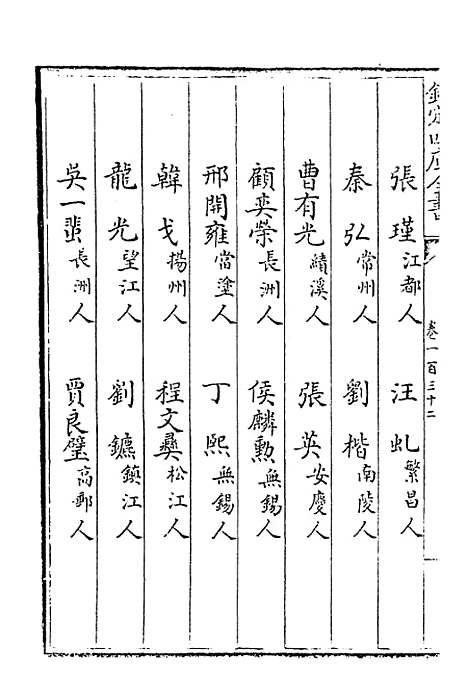 欽定四庫全書
卷一百三十二
張瑾江都人 汪虬繁昌人
秦弘常州人 劉楷南陵人
曹有光績溪人 張英安慶人
顧奕榮長洲人 侯麟勲無錫人
邢開雍當塗人 丁熙無錫人
韓戈揚州人 程文彝松江人
龍光望江人 劉鑣鎮江人
吳一蜚長洲人 賈良璧高郵人